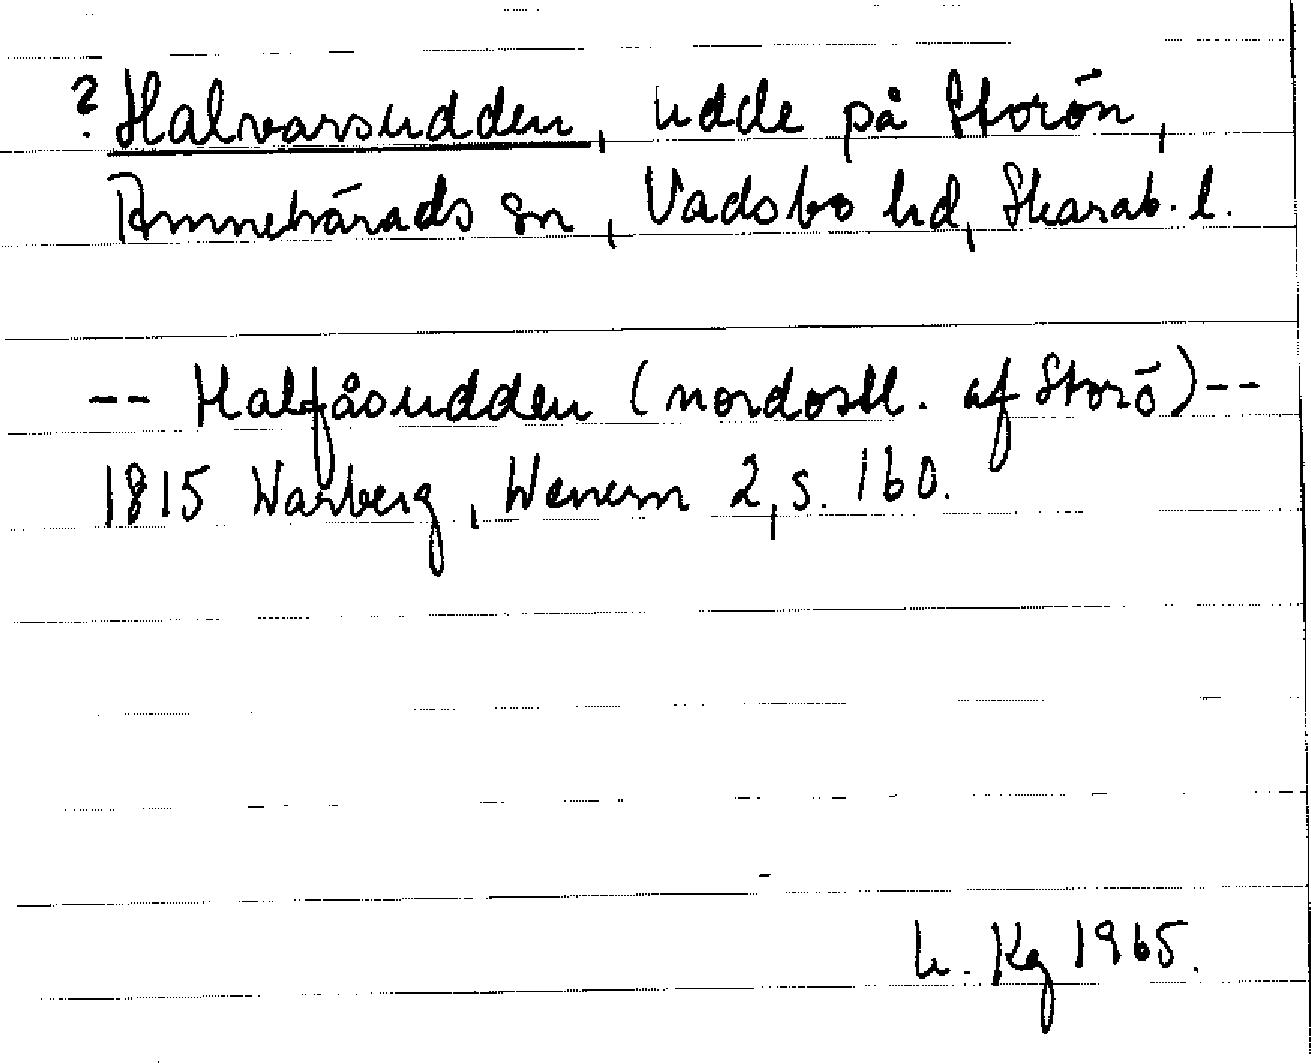 ? Halvarsudden, udde på Storön,
Amnehärads sn, Vadsbo hd, Skarab. l.
-- Halfåsudden (nordostl. af Storö) --
1815 Warberg, Wenern 2, s. 160.
L. Kg 1965.